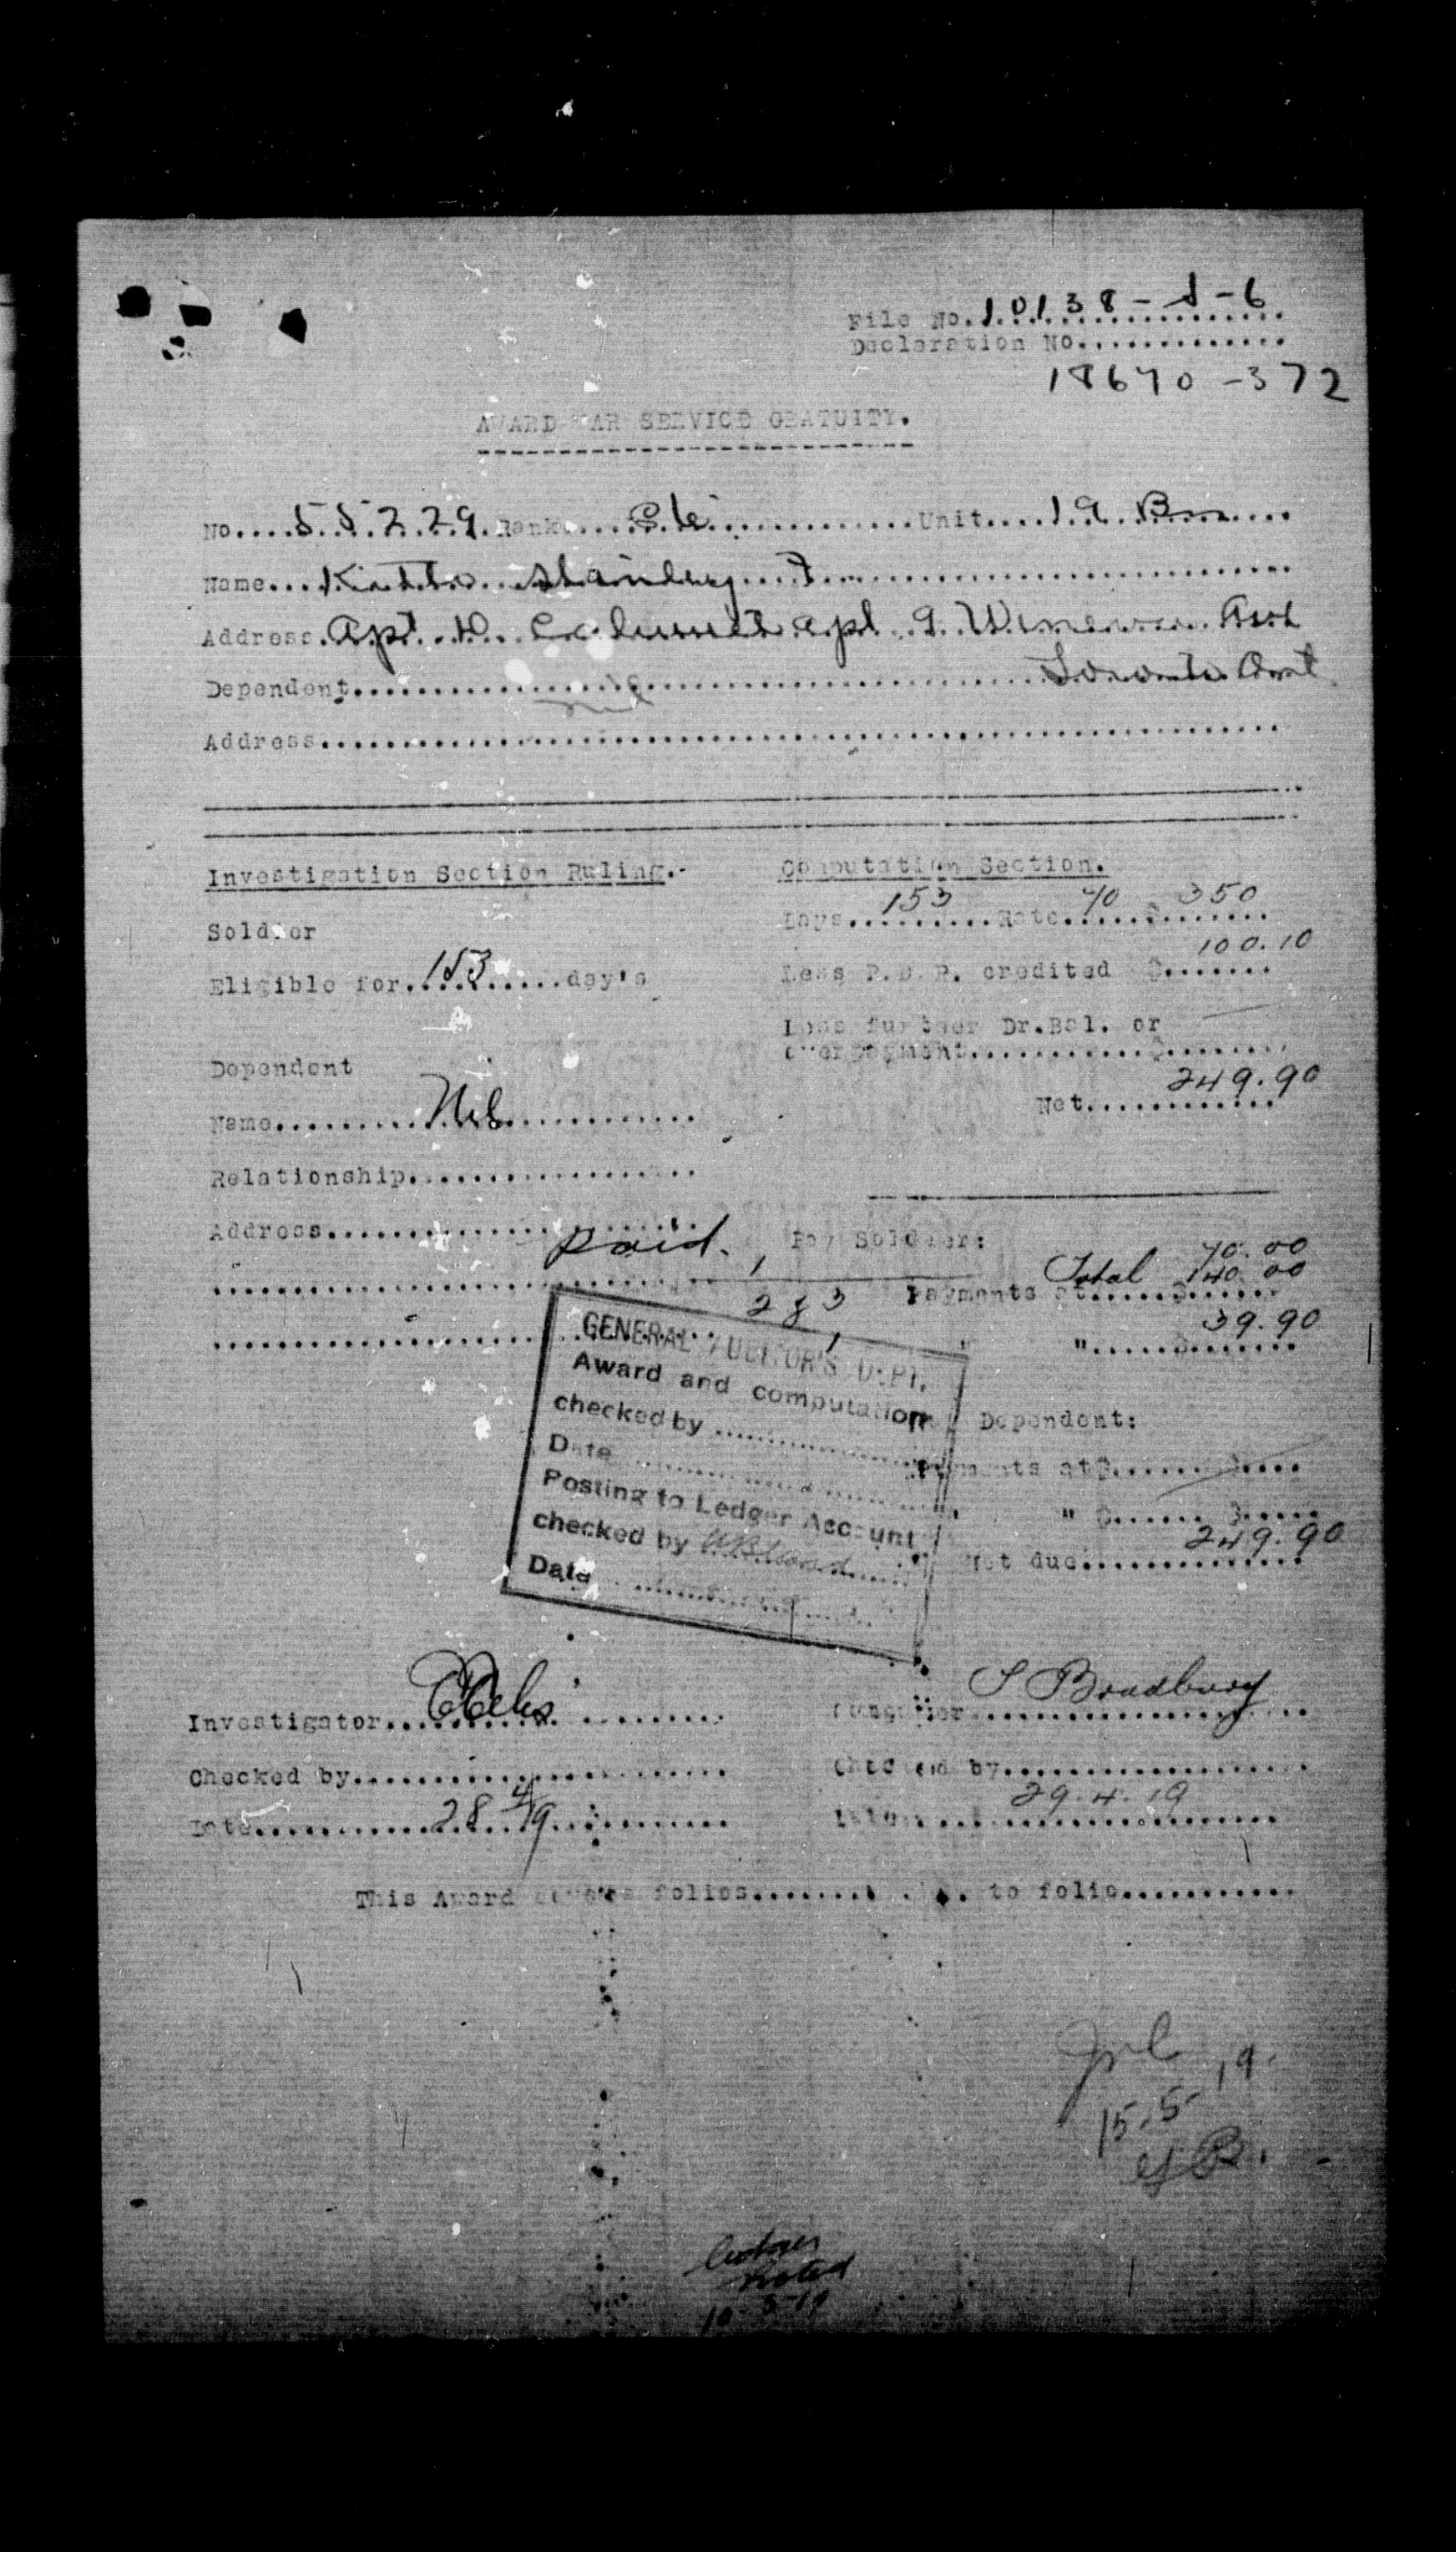 File No. 10138-S-6
Declaration No.............
18670-372
AWARD WAR SERVICE GRATUITY.
No....55229. Rank....Pte...........Unit....19 Bn....
Name...Kitto Stanley F...........
Address. Apt. D. Calumet apt. 9 Ave
Dependent..................Toronto Ont
nil
Address..............
Investigation Section Ruling.- Computation Section.
Soldier Days...153...Rate...70...$ 350
Eligible for...153...day's Less P.D.P. credited $ 100.10
Less further Dr.Bal. or
overpayment............$.......
Dependent
Name..........Nil............ Net............ 249.90
Relationship..................
Address..................
Paid. Pay Soldier: 70.00
1 2 & 3 Payments at....$.... Total 140 00
" ......$....... 39.90
GENERAL AUDITOR'S DEPT.
Award and computation
checked by ..............
Date ..............
Posting to Ledger Account
checked by
Date ..............
Dependent:
Payments at $......$....
" $......$.....
Net due.............. 249.90
Investigator.............. Computer S Bradbury
Checked by.............. Checked by..............
Date.......28 4/19....... Date....29.4.19....
This Award covers folios........... to folio............
15.5.19.
Ledger
noted
10-5-19